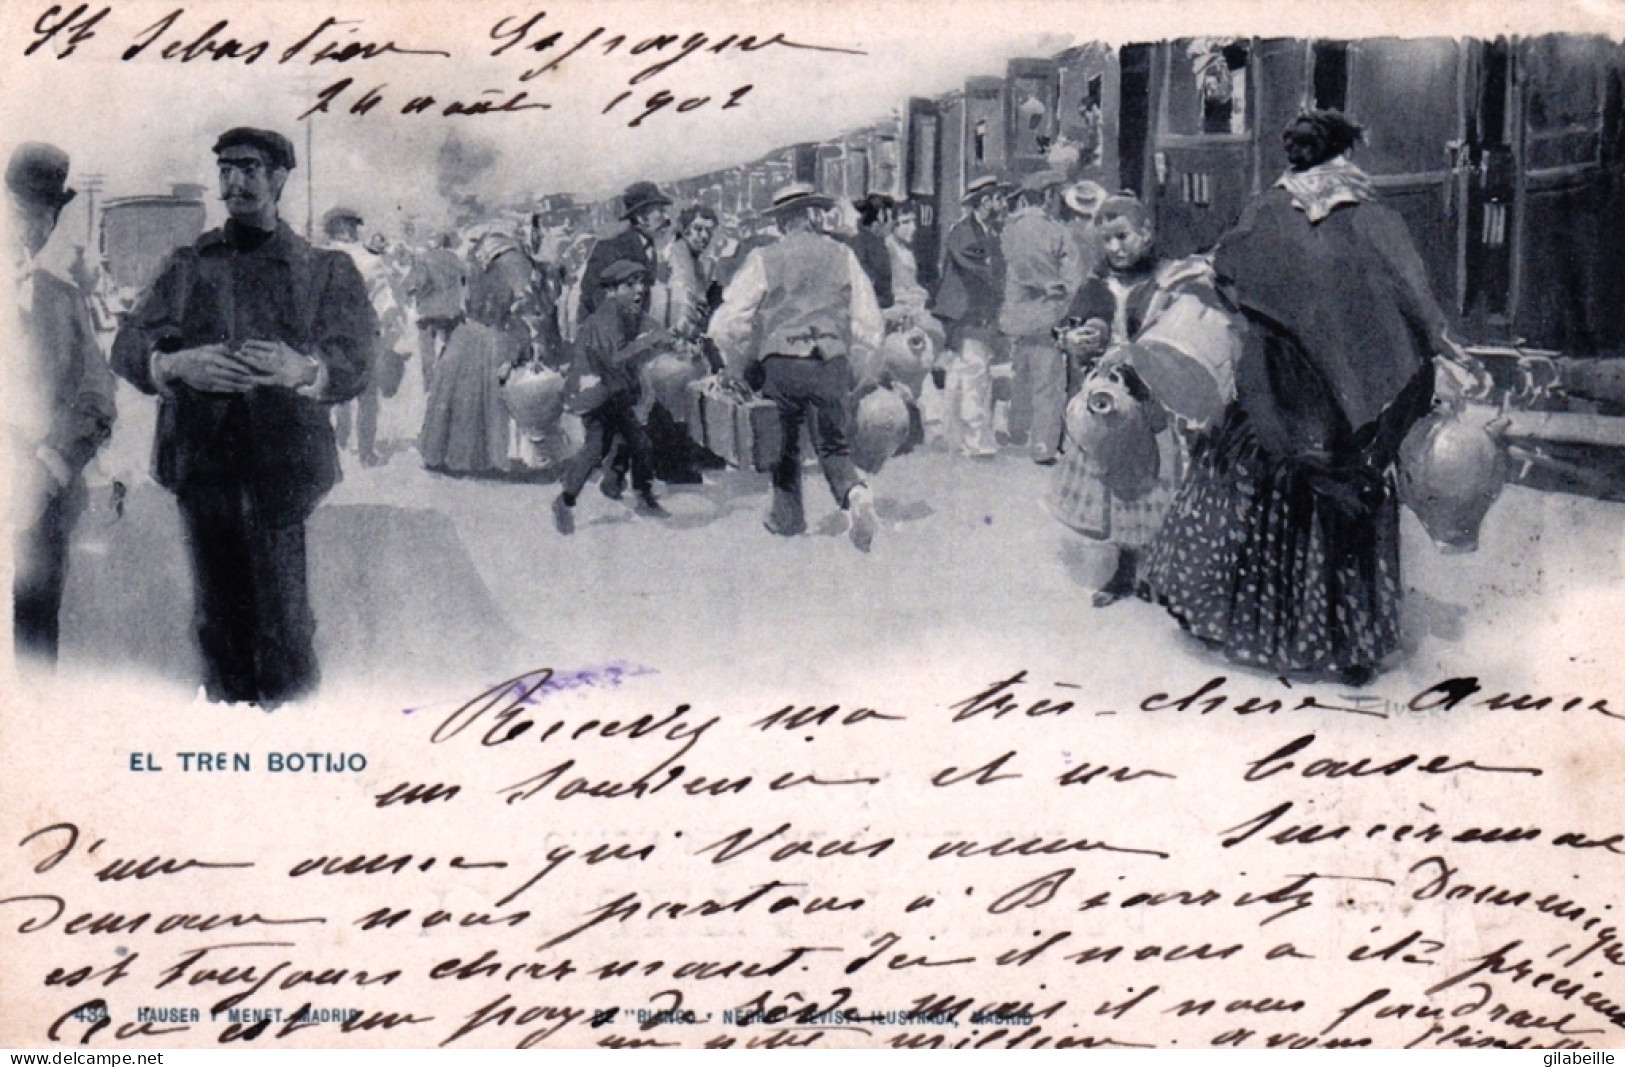 St Sebastien Espagne
24 août 1902
Recevez ma très-chère Amie
EL TREN BOTIJO
un souvenir et un baiser
d'une amie qui Vous aime Sincèrement
Demain nous partons à Biarritz. Dominique
est toujours charmant. Ici il nous a été précieux
434 HAUSER Y MENET.-MADRID
DE "BLANCO Y NEGRO" REVISTA ILUSTRADA, MADRID
Ça est un pays de rêve mais il nous faudrait
un petit million. a vous
gilabeille
delcampe.net